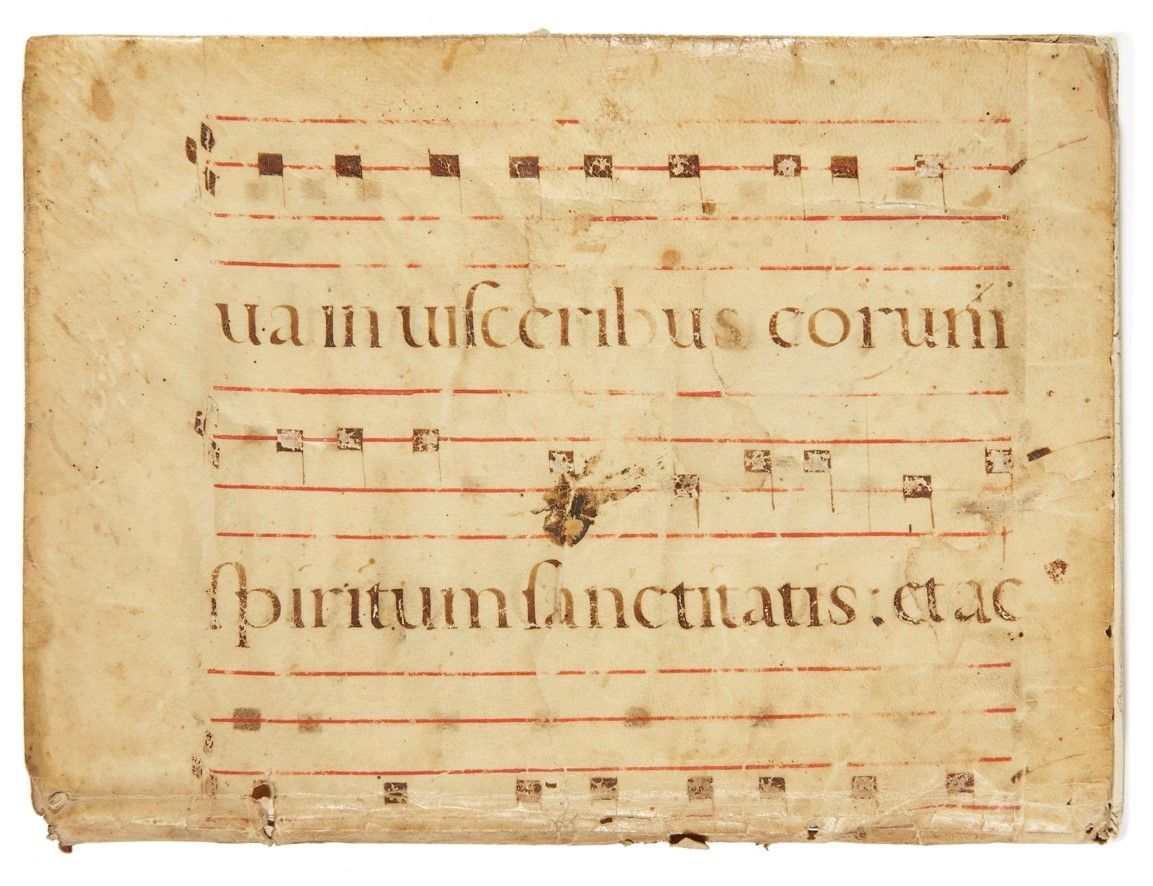 ua in uiſceribus eorum
ſpiritum ſanctitatis : et ac